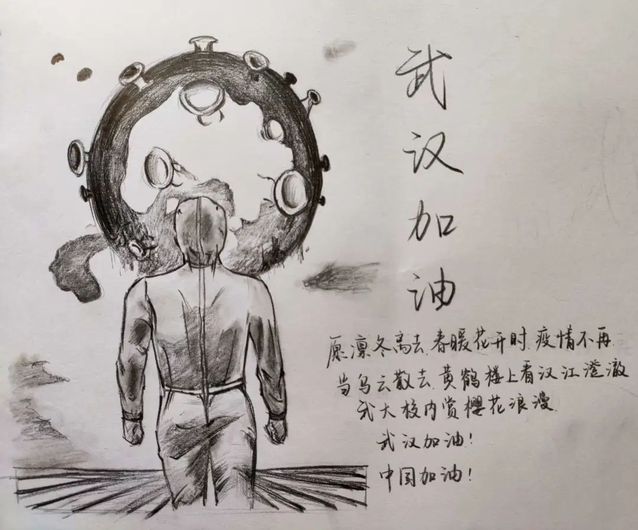 武汉加油
愿凛冬离去,春暖花开时,疫情不再
当乌云散去,黄鹤楼上看汉江澄澈
武大校内赏樱花浪漫
武汉加油!
中国加油!